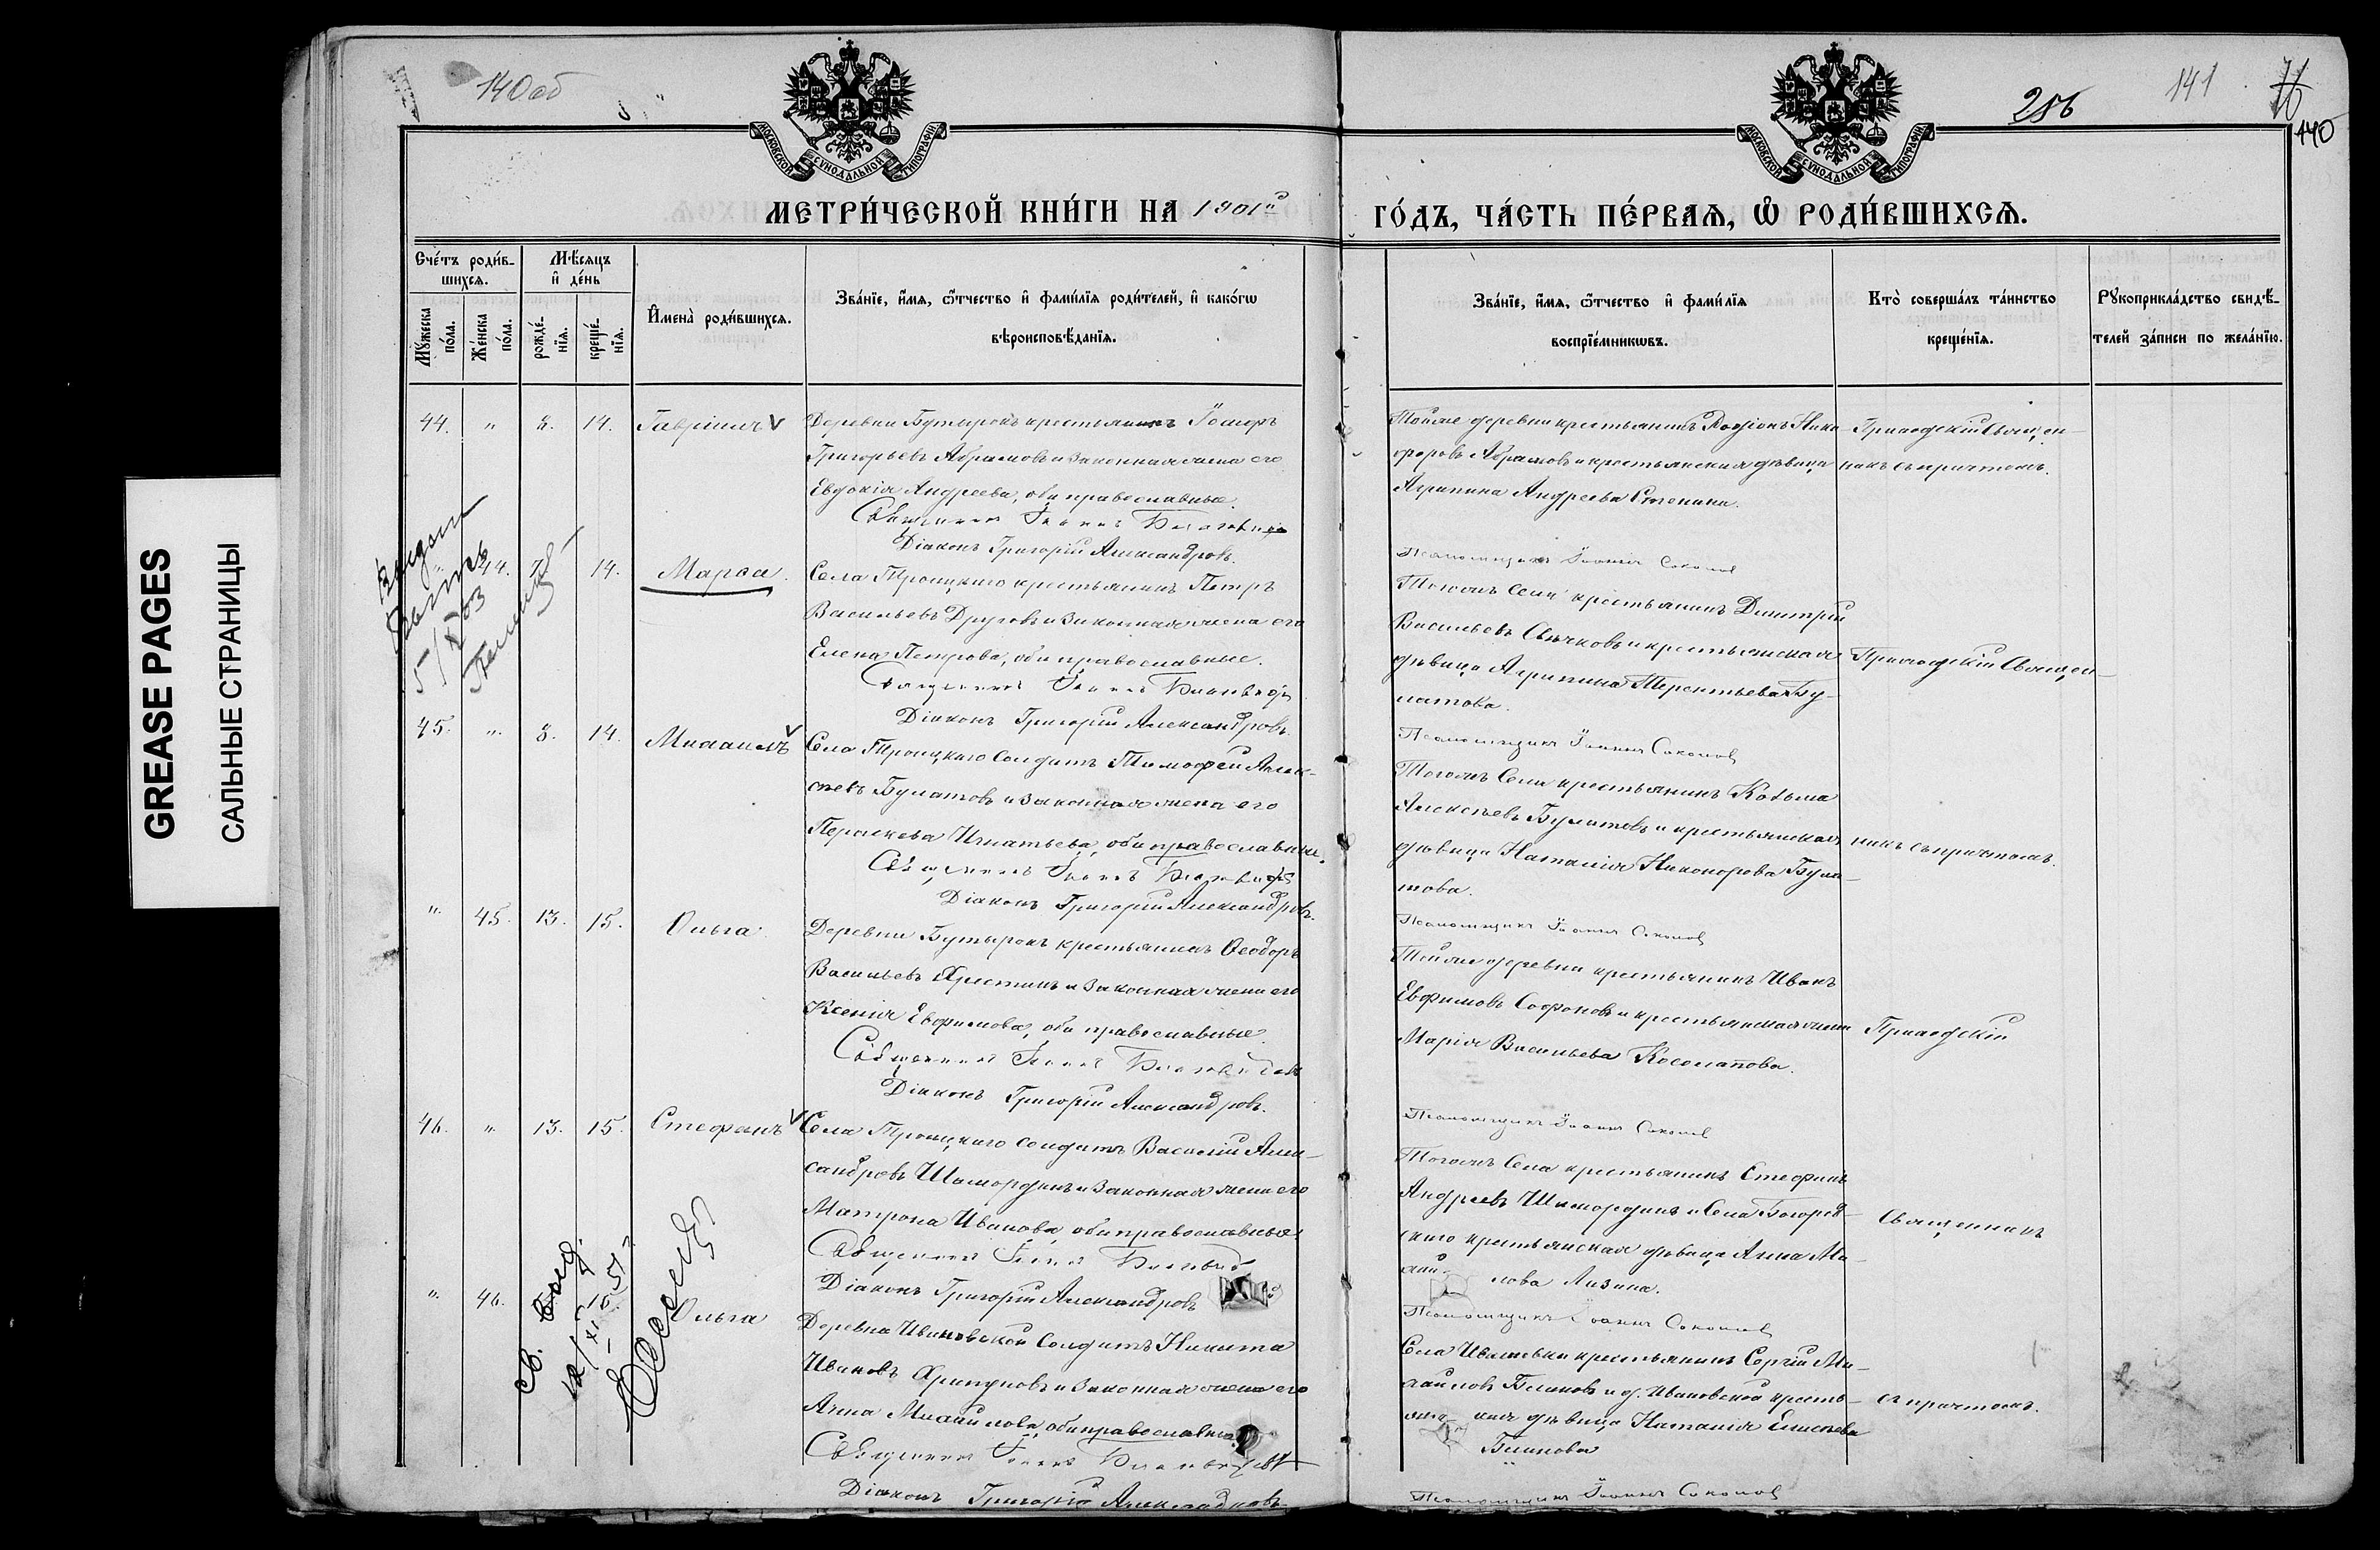 GREASE PAGES
САЛЬНЫЕ СТРАНИЦЫ
140об
256
141
140
МОСКОВСКОЙ СѴНОДАЛЬНОЙ ТИПОГРАФІИ
МОСКОВСКОЙ СѴНОДАЛЬНОЙ ТИПОГРАФІИ
МЕТРИ́ЧЕСКОЙ КНИ́ГИ НА 1901й
ГО́ДЪ, ЧА́СТЬ ПЕ́РВАѦ, Ѡ РОДИ́ВШИХСѦ.
Сче́тъ роди́в-
шихсѧ.
Мѣ́сѧцъ
и҆ де́нь
Мꙋ́жеска
по́ла.
Же́нска
по́ла.
рожде́-
нїѧ.
креще́-
нїѧ.
И҆мена̀ роди́вшихсѧ.
Зва́нїе, и҆́мѧ, ѻ҆́тчество и҆ фами́лїѧ роди́телей, и҆ како́гѡ
вѣроисповѣ́данїѧ.
Зва́нїе, и҆́мѧ, ѻ҆́тчество и҆ фами́лїѧ
воспрїе́мникѡвъ.
Кто̀ соверша́лъ та́инство
креще́нїѧ.
Рꙋкоприкла́дство свидѣ́-
телей за́писи по жела́нїю.
44. " 8. 14. Гавріилъ
Деревни Бутырокъ крестьянинъ
Григорьевъ Абрамовъ и законная жена его
Евдокія Андреева, оба православные.
Священникъ Іоаннъ
Діаконъ Григорій Александровъ.
Тойже деревни крестьянинъ Родіонъ Ники-
форовъ Абрамовъ и крестьянская дѣвица
Агрипина Андреева
Псаломщикъ Іоаннъ Соколов
Приходскій Священ-
никъ съ причтомъ.
" 44. 7. 14. Марѳа.
Села Троицкаго крестьянинъ Петръ
Васильевъ Друговъ и законная жена его
Елена Петрова, оба православные.
Священникъ Іоаннъ
Діаконъ Григорій Александровъ.
Тогожъ Села крестьянинъ Димитрій
Васильевъ и крестьянская
дѣвица Агрипина Терентьева Бу-
латова.
Псаломщикъ Іоаннъ Соколов
Приходскій Священ-
45. " 8. 14. Михаилъ
Села Троицкаго Солдатъ Тимофей Алек-
сѣевъ Булатовъ и законная жена его
Параскева Игнатьева, оба православные.
Священникъ Іоаннъ
Діаконъ Григорій Александровъ.
Тогожъ Села крестьянинъ Козьма
Алексѣевъ Булатовъ и крестьянская
дѣвица Наталія Никонорова Була-
това.
Псаломщикъ Іоаннъ Соколов
никъ съ причтомъ.
" 45. 13. 15. Ольга
Деревни Бутырокъ крестьянинъ Ѳеодоръ
Васильевъ и законная жена его
Ксенія Евфимова, оба православные.
Священникъ Іоаннъ
Діаконъ Григорій Александровъ.
Тойже деревни крестьянинъ Иванъ
Евфимовъ Софоновъ и крестьянская жена
Марія Васильева Косолапова.
Псаломщикъ Іоаннъ Соколов
Приходскій
46. " 13. 15. Стефанъ
Села Троицкаго солдатъ Василій Алек-
сандровъ Шамординъ и законная жена его
Матрона Иванова, оба православные
Священникъ Іоаннъ
Діаконъ Григорій Александровъ
Тогожъ Села крестьянинъ Стефанъ
Андреевъ Шамординъ и Села Богород-
скаго крестьянская дѣвица Анна Ми-
хай- лова Лизина.
Псаломщикъ Іоаннъ Соколов
Священникъ
" 46. Ольга
Деревни Ивановской Солдатъ Никита
Ивановъ и законная жена его
Анна Михайлова, оба православные
Священникъ Іоаннъ
Діаконъ Григорій Александровъ
Села крестьянинъ Сергій Ми-
хайловъ и д. Ивановской кресть-
янс- кая дѣвица Наталія Елисѣева
Блинова
Псаломщикъ Іоаннъ Соколов
съ причтомъ.